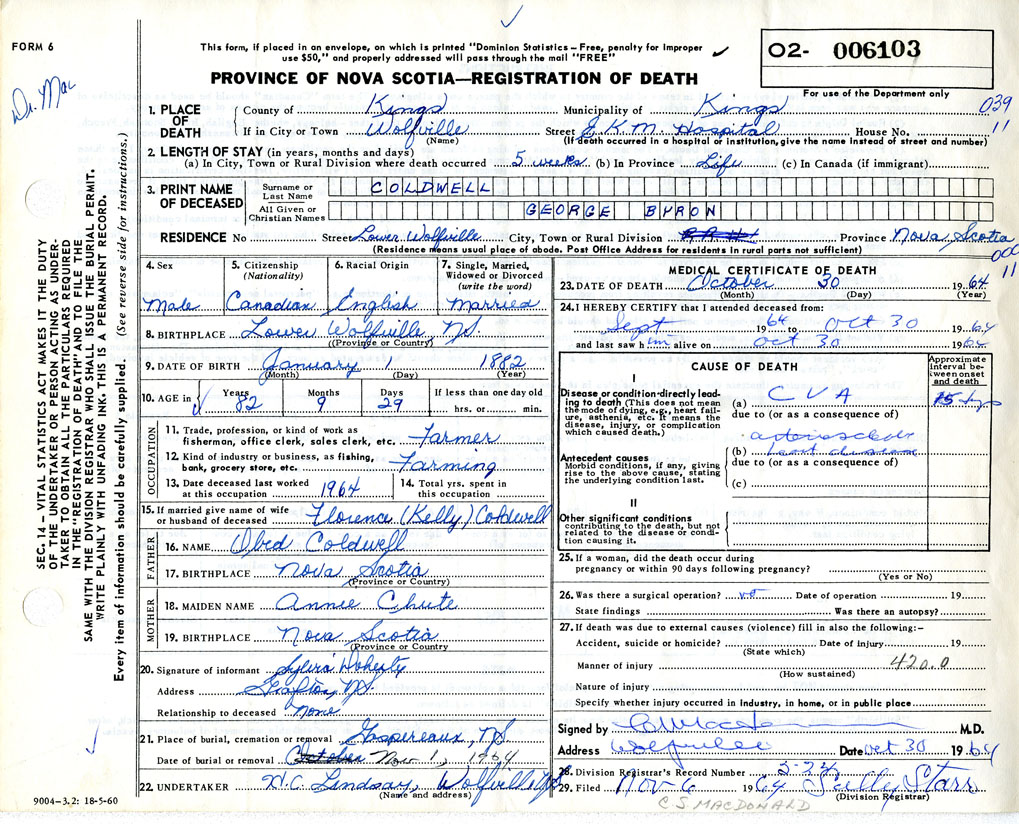 FORM 6
Dr. Mac
This form, if placed in an envelope, on which is printed "Dominion Statistics – Free, penalty for improper
use $50," and properly addressed will pass through the mail "FREE"
PROVINCE OF NOVA SCOTIA—REGISTRATION OF DEATH
O2- 006103
For use of the Department only
039
11
SEC. 14 – VITAL STATISTICS ACT MAKES IT THE DUTY
OF THE UNDERTAKER OR PERSON ACTING AS UNDER-
TAKER TO OBTAIN ALL THE PARTICULARS REQUIRED
IN THE "REGISTRATION OF DEATH" AND TO FILE THE
SAME WITH THE DIVISION REGISTRAR WHO SHALL ISSUE THE BURIAL PERMIT.
WRITE PLAINLY WITH UNFADING INK. THIS IS A PERMANENT RECORD.
Every item of information should be carefully supplied. (See reverse side for instructions.)
1. PLACE OF DEATH
County of Kings Municipality of Kings
If in City or Town Wolfville Street E.K.M. Hospital House No.
(Name) (If death occurred in a hospital or institution, give the name instead of street and number)
2. LENGTH OF STAY (in years, months and days)
(a) In City, Town or Rural Division where death occurred 5 weeks (b) In Province Life (c) In Canada (if immigrant)
3. PRINT NAME OF DECEASED
Surname or Last Name COLDWELL
All Given or Christian Names GEORGE BYRON
RESIDENCE No Street Lower Wolfville City, Town or Rural Division Province Nova Scotia
(Residence means usual place of abode. Post Office Address for residents in rural parts not sufficient)
11
4. Sex Male
5. Citizenship (Nationality) Canadian
6. Racial Origin English
7. Single, Married, Widowed or Divorced (write the word) Married
8. BIRTHPLACE Lower Wolfville, NS.
(Province or Country)
9. DATE OF BIRTH January 1 1882
(Month) (Day) (Year)
10. AGE in Years 82 Months 9 Days 29 If less than one day old hrs. or min.
OCCUPATION
11. Trade, profession, or kind of work as
fisherman, office clerk, sales clerk, etc. Farmer
12. Kind of industry or business, as fishing,
bank, grocery store, etc. Farming
13. Date deceased last worked at this occupation 1964
14. Total yrs. spent in this occupation
15. If married give name of wife
or husband of deceased Florence (Kelly) Coldwell
FATHER
16. NAME Obed Coldwell
17. BIRTHPLACE Nova Scotia
(Province or Country)
MOTHER
18. MAIDEN NAME Annie Chute
19. BIRTHPLACE Nova Scotia
(Province or Country
20. Signature of informant Sylvia Doherty
Address Grafton, NS.
Relationship to deceased None
21. Place of burial, cremation or removal Gaspereaux, NS
Date of burial or removal October Nov 1, 1964
22. UNDERTAKER H.C. Lindsay, Wolfville NS
(Name and address)
9004–3.2: 18-5-60
MEDICAL CERTIFICATE OF DEATH
23. DATE OF DEATH October 30 19 64
(Month) (Day) (Year)
24. I HEREBY CERTIFY that I attended deceased from:
Sept 19 64 to Oct 30 19 64
and last saw him alive on Oct 30 19 64
CAUSE OF DEATH
Approximate interval between onset and death
I
Disease or condition directly lead-
ing to death (This does not mean
the mode of dying, e.g., heart fail-
ure, asthenia, etc. It means the
disease, injury, or complication
which caused death.)
(a) CVA
due to (or as a consequence of)
Antecedent causes
Morbid conditions, if any, giving
rise to the above cause, stating
the underlying condition last.
(b) heart disease
due to (or as a consequence of)
(c)
II
Other significant conditions
contributing to the death, but not
related to the disease or condi-
tion causing it.
25. If a woman, did the death occur during
pregnancy or within 90 days following pregnancy?
(Yes or No)
26. Was there a surgical operation? Date of operation 19
State findings Was there an autopsy?
27. If death was due to external causes (violence) fill in also the following:–
Accident, suicide or homicide? Date of injury 19
(State which)
Manner of injury 420.0
(How sustained)
Nature of injury
Specify whether injury occurred in industry, in home, or in public place
Signed by M.D.
Address Wolfville Date Oct 30 19 64
28. Division Registrar's Record Number
29. Filed Nov 6 19 64 Sally Starr
(Division Registrar)
C S MACDONALD